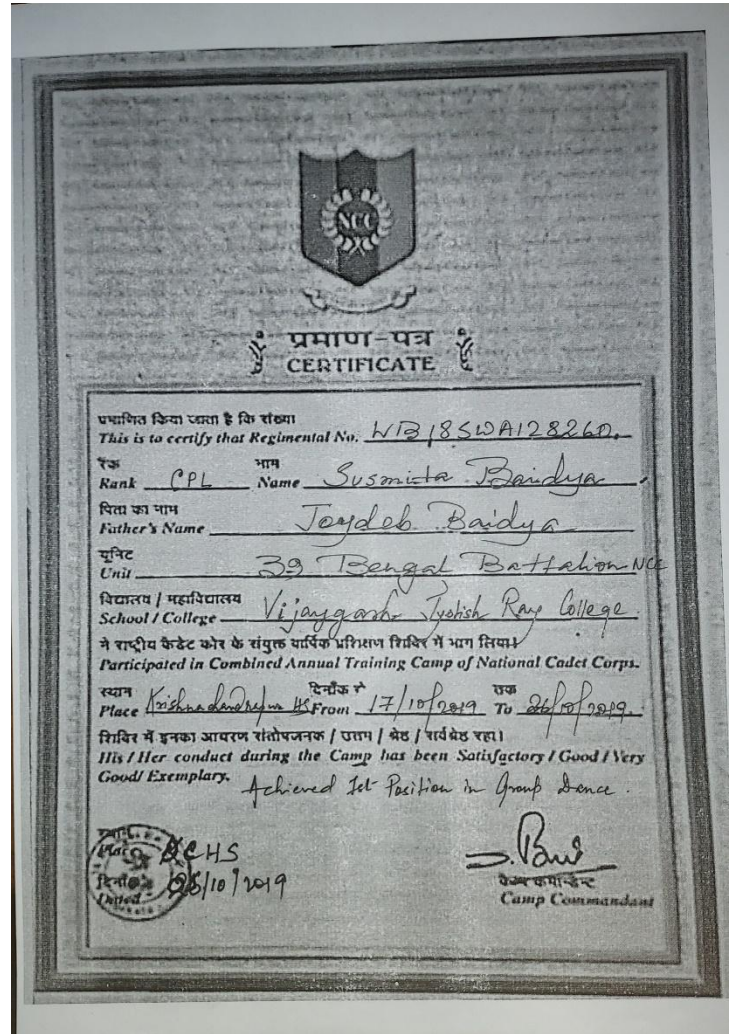 NCC
प्रमाण-पत्र
CERTIFICATE
प्रमाणित किया जाता है कि संख्या
This is to certify that Regimental No. WB18SWA128260
रैंक नाम
Rank CPL Name Susmita Baidya
पिता का नाम
Father's Name Joydeb Baidya
यूनिट
Unit 39 Bengal Battalion NCC
विद्यालय / महाविद्यालय
School / College Vijaygarh Jyotish Ray College
ने राष्ट्रीय कैडेट कोर के संयुक्त वार्षिक प्रशिक्षण शिविर में भाग लिया।
Participated in Combined Annual Training Camp of National Cadet Corps.
स्थान दिनाँक से तक
Place HS From 17/10/2019 To 26/10/2019.
शिविर में इनका आचरण संतोषजनक / उत्तम / श्रेष्ठ / सर्वश्रेष्ठ रहा।
His / Her conduct during the Camp has been Satisfactory / Good / Very
Good / Exemplary.
Achieved 1st Position in Group Dance.
KCHS
दिनाँक
Dated /10/2019
कैम्प कमान्डेन्ट
Camp Commandant